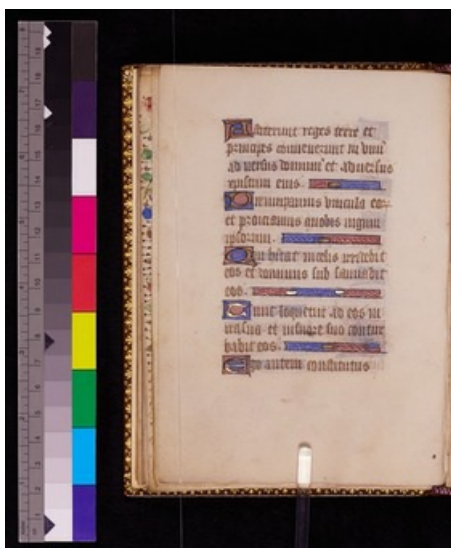 Astiterunt reges terre et
principes convenerunt in unu
adversus dominu et adversus
cristum eius.
Dirumpamus vincula eor
et proiciamus anobis iugum
ipsorum.
Qui habitat incelis irridebit
eos et dominus sub sannabit
eos.
Tunc loquetur ad eos in
ira sua et infurore suo contur
babit eos.
Ego autem constitutus